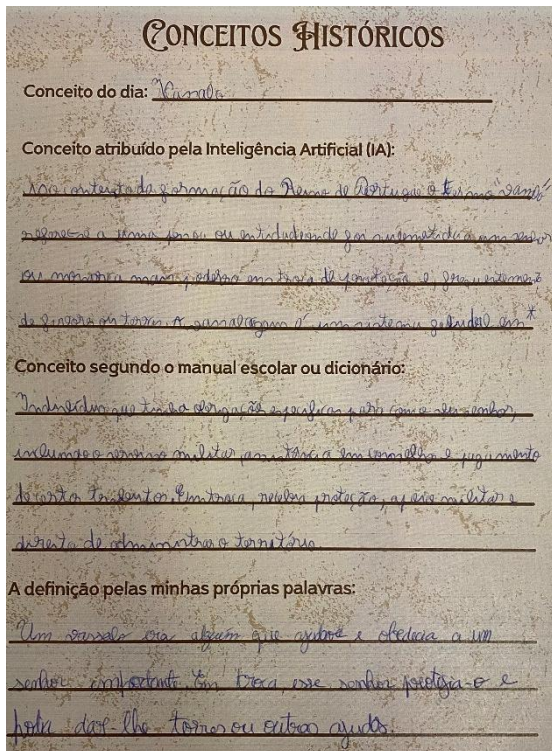 CONCEITOS HISTÓRICOS
Conceito do dia: Vassalo
Conceito atribuído pela Inteligência Artificial (IA):
No contexto da formação do Reino de Portugal o termo "vassalo"
refere-se a uma pessoa ou entidade onde foi submetida a um senhor
ou monarca mais poderoso em troca de proteção e frequentemente
de favores ou terras. A vassalagem é um sistema feudal em *
Conceito segundo o manual escolar ou dicionário:
Indivíduo que tinha obrigações específicas para com o seu senhor,
incluindo o serviço militar, assistência em conselho e pagamento
de certos tributos. Em troca, recebia proteção, apoio militar e
direito de administrar o território
A definição pelas minhas próprias palavras:
Um vassalo era alguém que ajudava e obedecia a um
senhor importante. Em troca, esse senhor protegia-o e
podia dar-lhe terras ou outras ajudas.